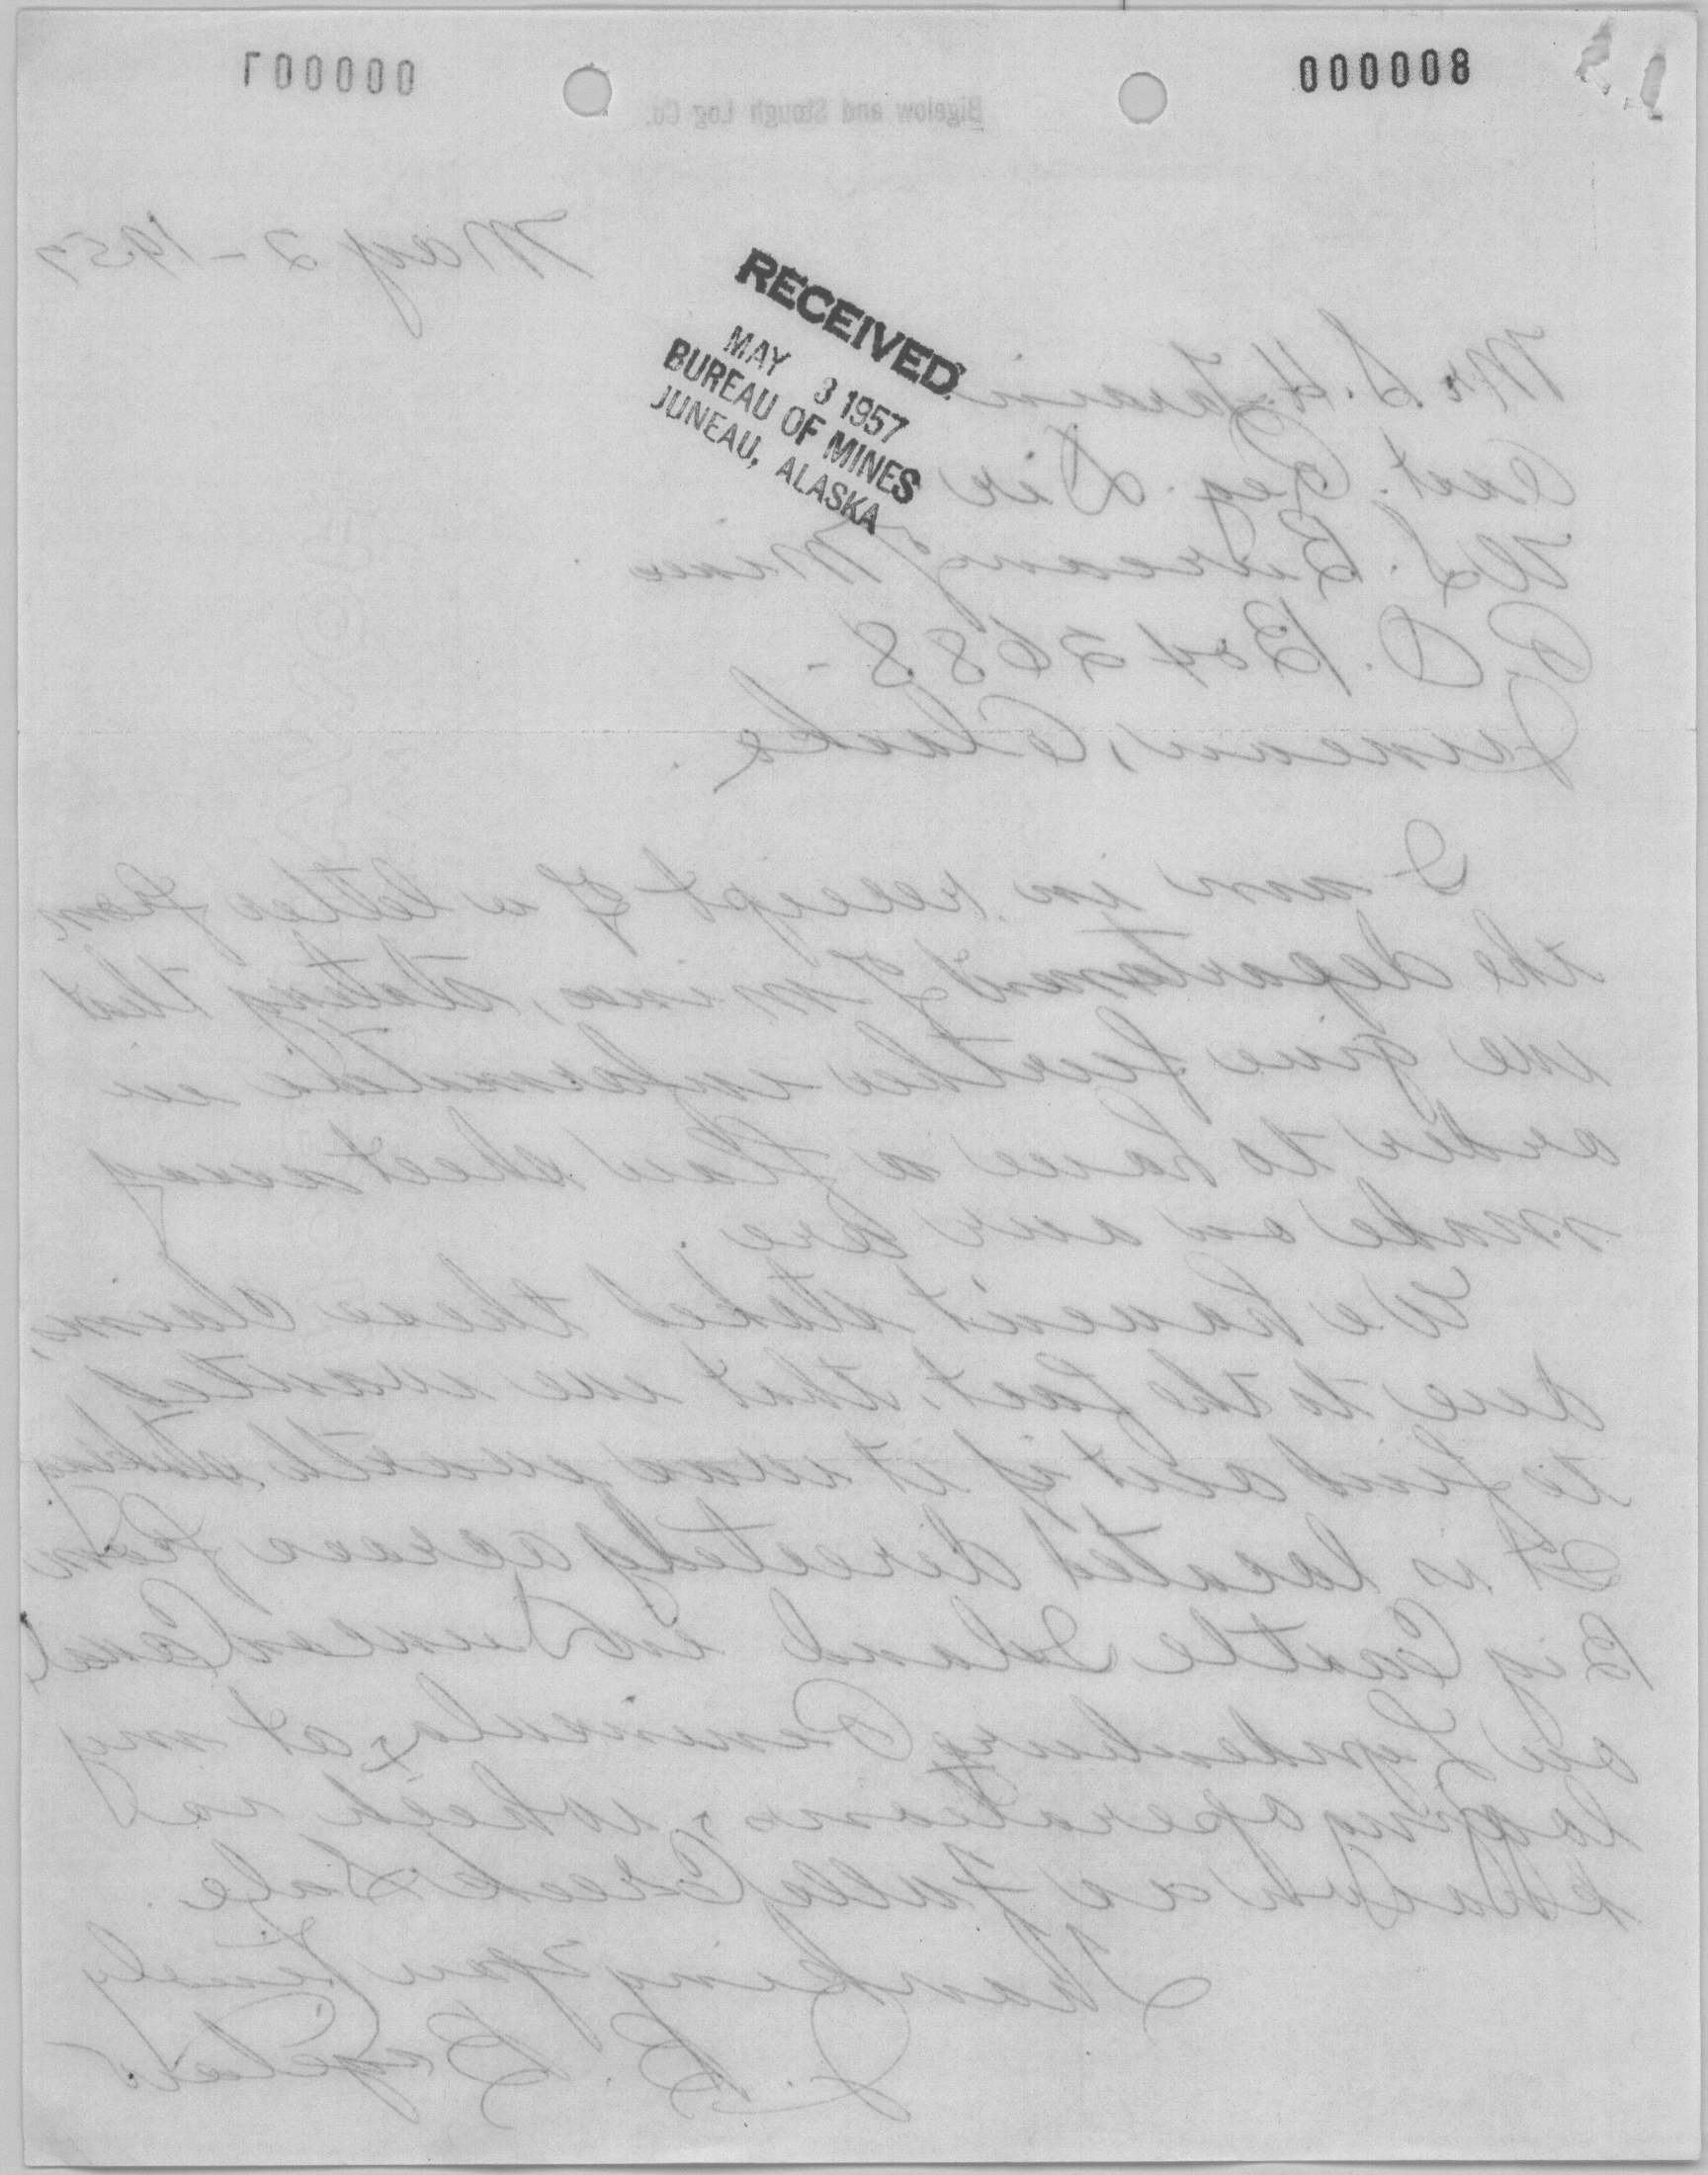 000008
000007
Bigelow and Stough Log Co.
RECEIVED
MAY 3 1957
BUREAU OF MINES
JUNEAU, ALASKA
May 2 - 1957
Mr. S. H.
Reg. Dir
U.S. Bureau of Mines
P.O. Box 2688 -
Juneau, Alaska.
I am in receipt of a letter from
the department of mines, stating that
we give further information in
order to have a
make on our ore.
We haven't staked these claims,
due to the fact, that we wanted
to find out if it was worth staking.
It is located directely across from
Big Castle Island in Duncan Canal,
on Lyndenburg Peninsula, at my
loging operations, which is
known as Falls Creek Sale.
Thanking you kindly
J. B. Bigelow